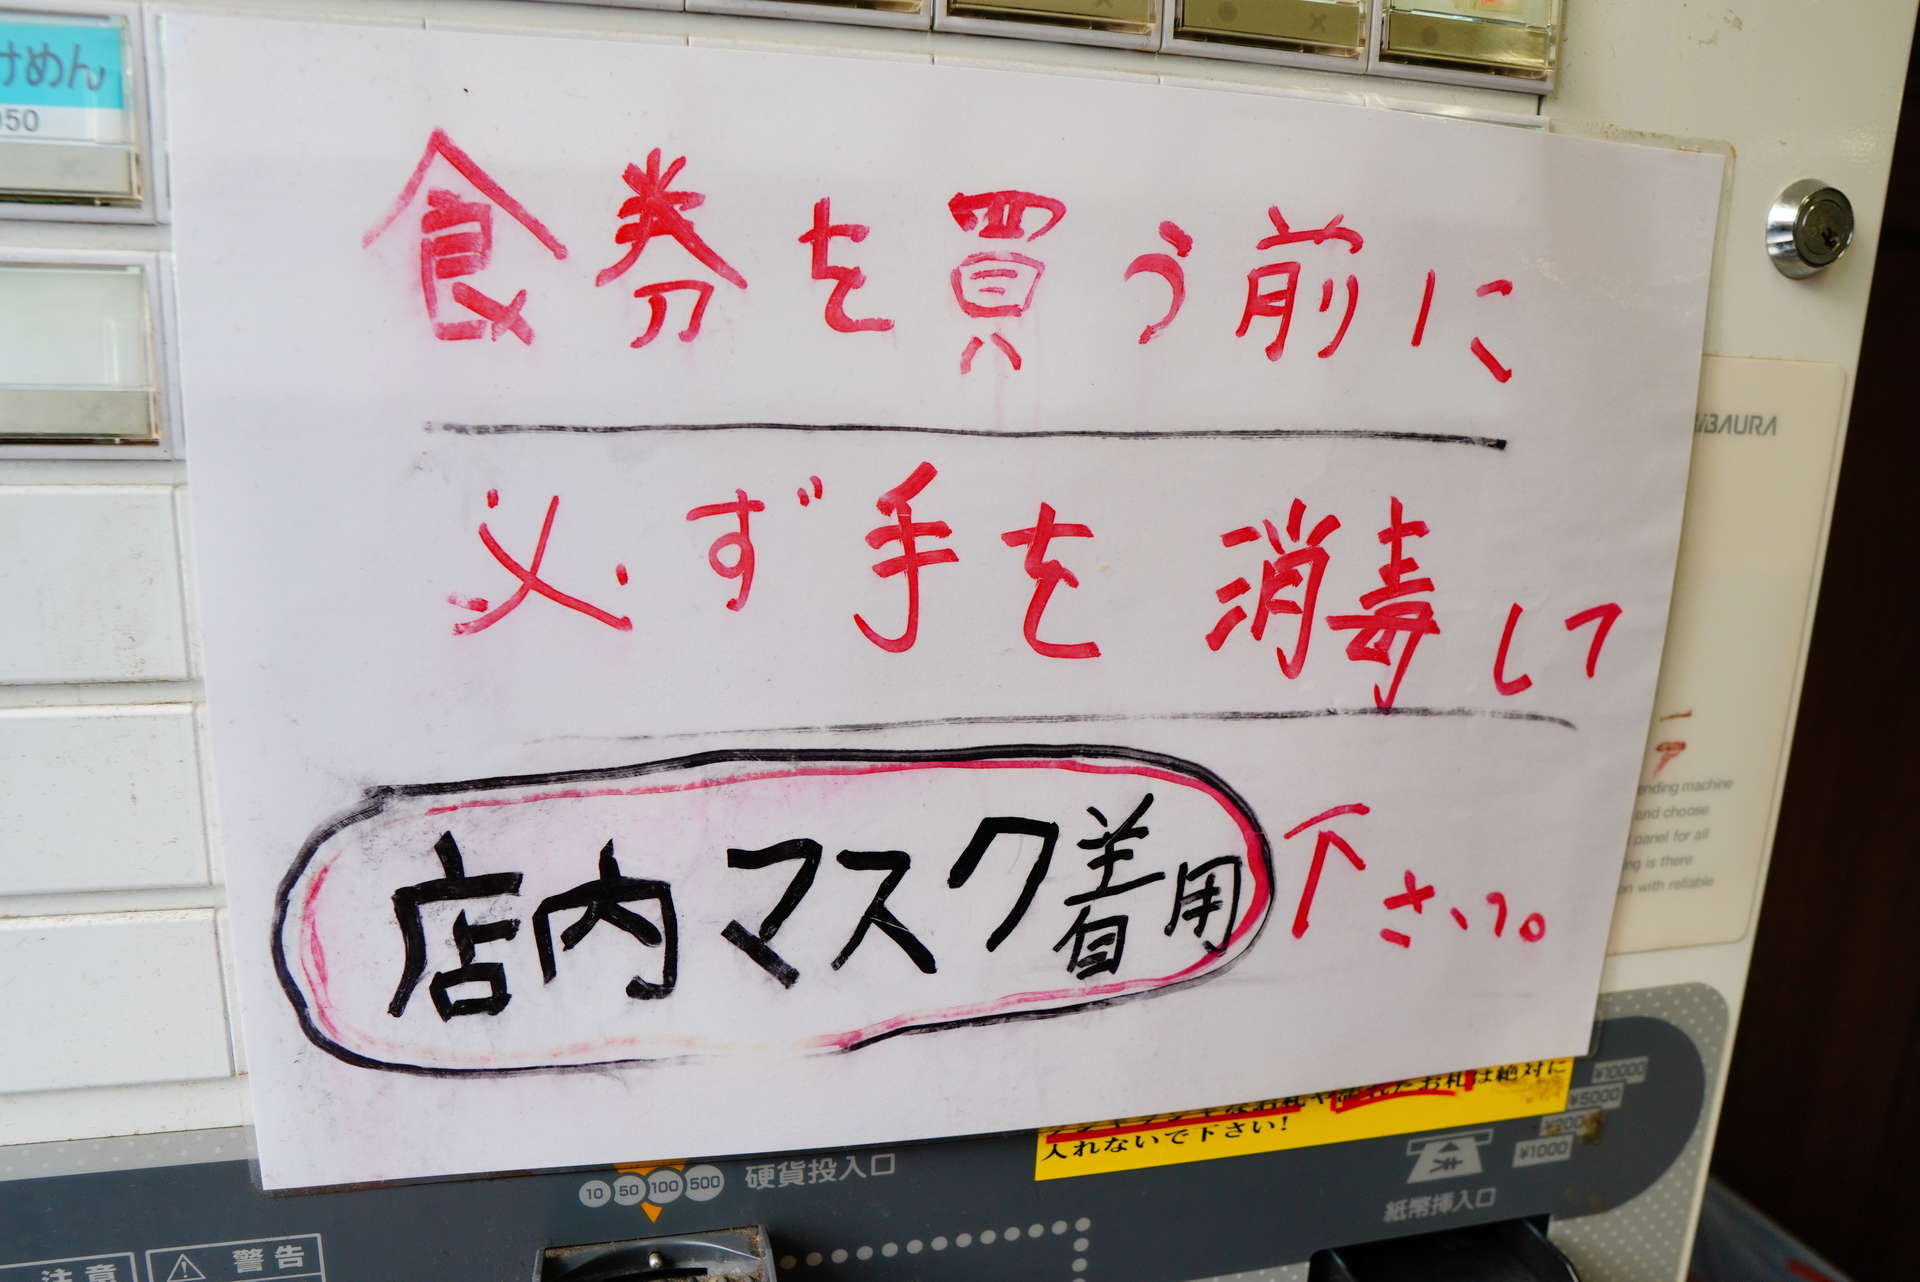 けめん
950
食券を買う前に
必ず手を消毒して
店内マスク着用下さい。
IBAURA
ending machine
and choose
panel for all
ng is there
on with reliable
なお札や濡れたお札は絶対に
入れないで下さい!
¥10000
¥5000
¥2000
¥1000
10 50 100 500
硬貨投入口
紙幣挿入口
注意
警告